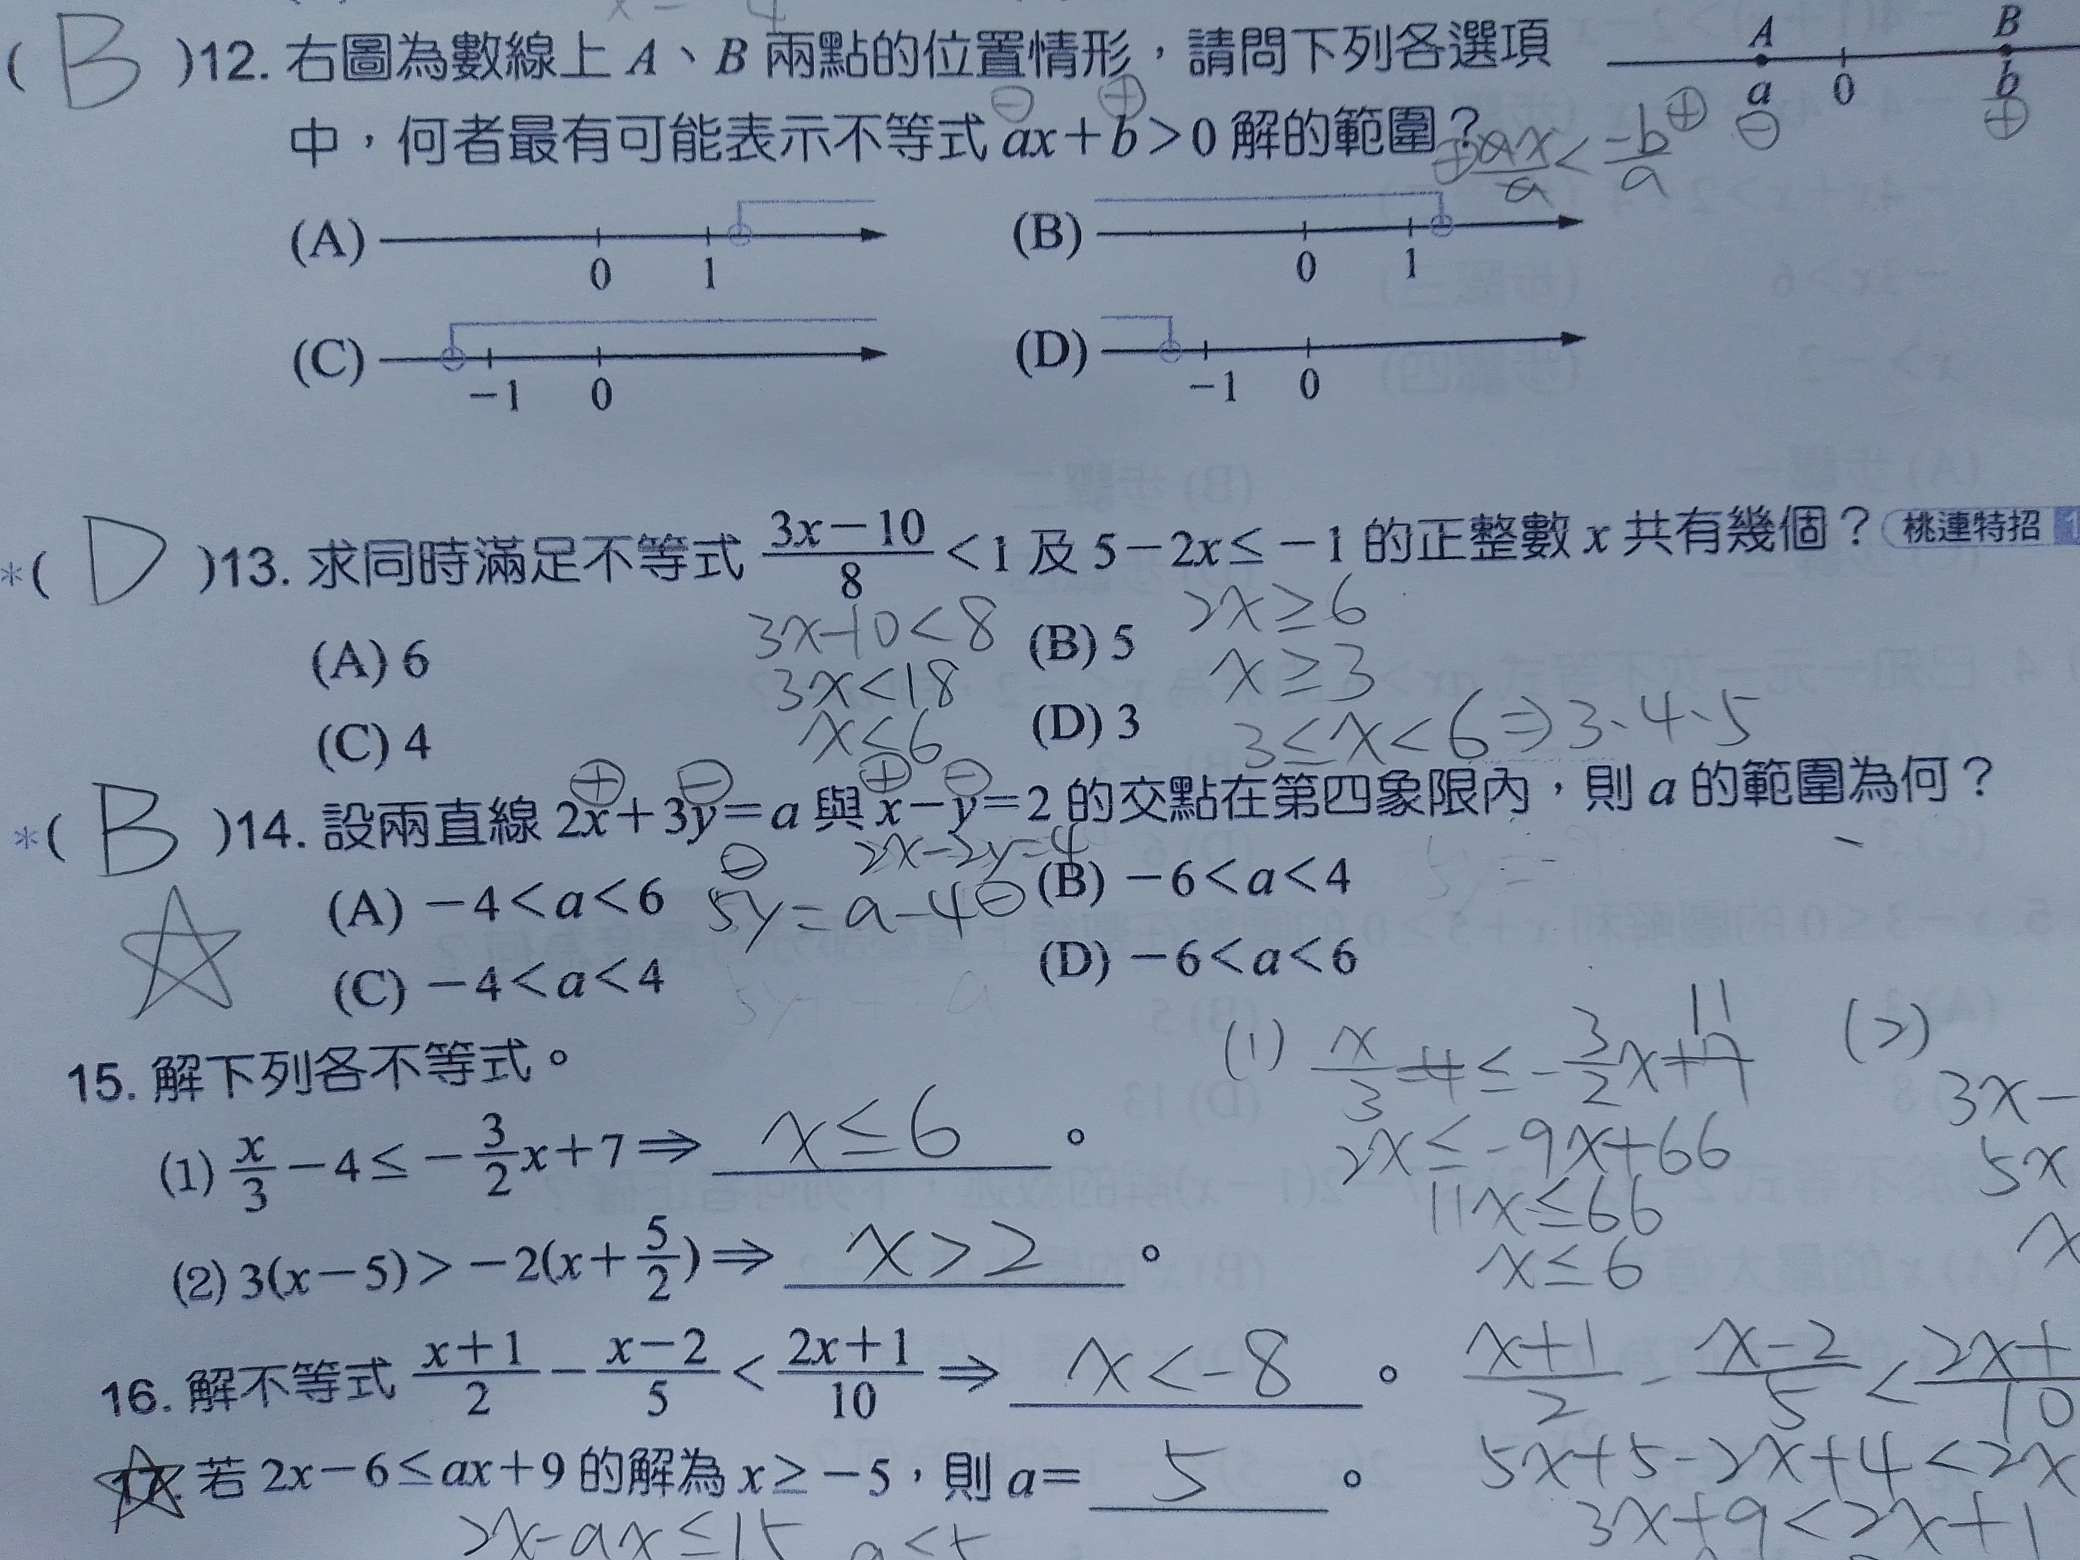 ( B )12. 右圖為數線上 A、B 兩點的位置情形，請問下列各選項
A B
a 0 b
⊖ ⊕
中，何者最有可能表示不等式 ax+b>0 解的範圍？
⊖ ⊕
ax/a < -b/a ⊕
(A) 0 1 (B) 0 1
(C) -1 0 (D) -1 0
*( D )13. 求同時滿足不等式 (3x-10)/8 <1 及 5-2x≤-1 的正整數 x 共有幾個？ 桃連特招
3x-10<8 2x≥6
(A) 6 (B) 5
3x<18 x≥3
x<6 3≤x<6⇒3、4、5
(C) 4 (D) 3
⊕ ⊖ ⊕ ⊖
*( B )14. 設兩直線 2x+3y=a 與 x-y=2 的交點在第四象限內，則 a 的範圍為何？
2x-2y=4
(A) -4<a<6 (B) -6<a<4
⊖
5y=a-4⊖
(C) -4<a<4 (D) -6<a<6
15. 解下列各不等式。
(1) x/3 -4 ≤ -3/2 x+7 11 (2)
3x-
(1) x/3 -4≤ -3/2 x+7⇒ x≤6 。
2x≤-9x+66 5x
11x≤66 x
(2) 3(x-5)>-2(x+5/2)⇒ x>2 。
x≤6
16. 解不等式 (x+1)/2 - (x-2)/5 < (2x+1)/10 ⇒ x<-8 。
(x+1)/2 - (x-2)/5 < (2x+/10
5x+5-2x+4<2x
17. 若 2x-6≤ax+9 的解為 x≥-5，則 a= 5 。
3x+9<2x+1
2x-ax≤15